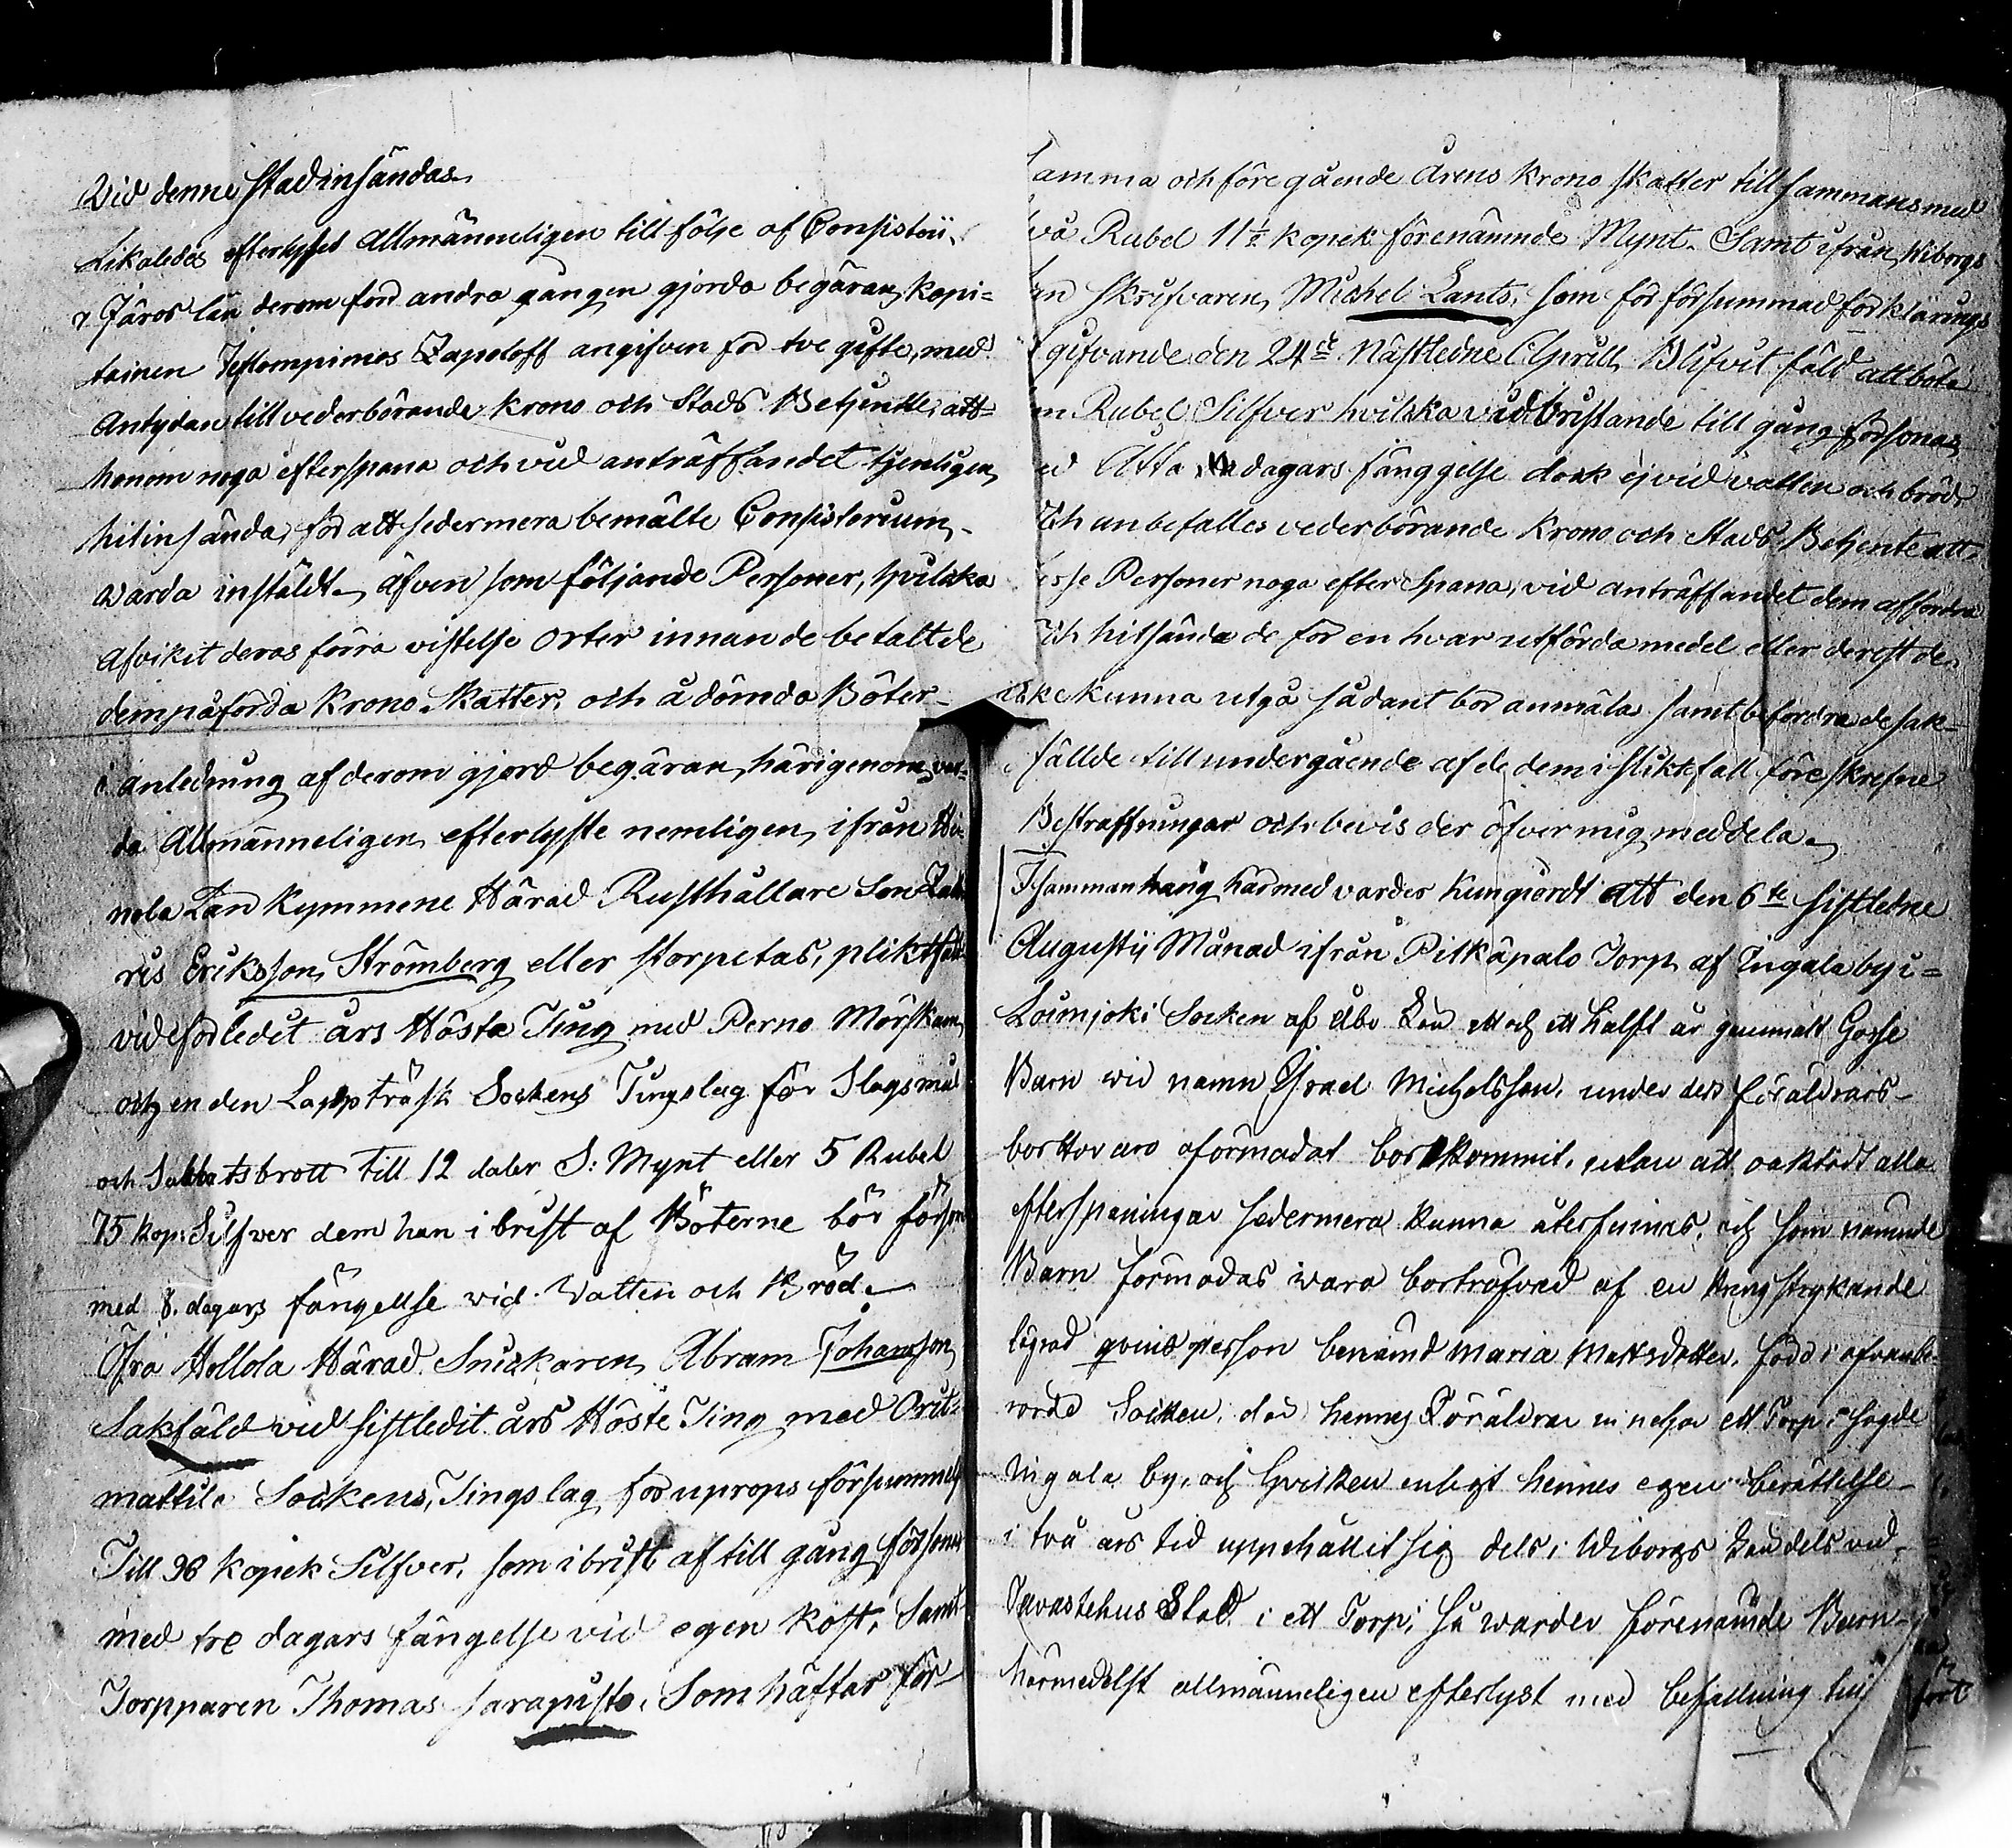 Vid denne stad insändas
Likaledes efterlyses Allmänneligen till följe af Consistorii
derom för andra gången gjorda begäran, kapi=
tainen Zapoloff angifven för tvegifte, med
Antydan till vederbörande krono och Stads Betjente, att
honom noga efterspana och vid anträffandet tjenligen
hitinsända, för att sedermera bemälte Consistorium
warda instäldt, äfven som följande Personer, hvilka
Afvikit deras förra vistelse orter innan de betalt de
dem påförda Krono Skatter, och ådömda Böter
i anledning af derom gjord begäran, härigenom var-
da Allmänneligen efterlyste nemligen, ifrån Hei-
nola Län Kymmene Härad Rusthållare Son
Eriksson Strömberg eller storpetas, pliktfäld
vid förledit års Höste Ting med Perno Mörskom
och en den Lappträsk Sockens Tingslag för Slagsmål
och Sabbatsbrott till 12 daler S: Mynt eller 5 Rubel
75 kop: Silfver dem han i brist af Böterne bör försona
med 8. dagars fångellse vid Vatten och Bröd.
Öfra Hollola Härad Snickaren Abram Johansson
Sakfäld vid sistledit års Höste Ting med Orit-
mattila Sockens, Tingslag för uprops försummelse
Till 98 kopek Silfver, som i brist af till gång försonas
med tre dagars fångelse vid egen kost, Samt
Torpparen Thomas Sarapisto, Som häftar för
samma och föregående Årens Krono skatter tillsammans med
två Rubel 11½ kopek förenämnde Mynt. Samt ifrån Wiborgs
Län Skrifvaren Michel Lants, som för försummad förklarings
gifvande den 24de Nästledne Aprill Blifvit fäld att böta
en Rubel Silfver hvilka vid bristande till gång försonas
med Åtta dagars fånggelse dock ej vid vatten och bröd,
Och anbefalles vederbörande Krono och Stads Betjente att
desse Personer noga efter Spana, vid anträffandet dem affordra
Och hitsända de för en hvar utförda medel eller derest de
icke kunna utgå sådant bör anmäla samt befordra de sak-
fällde till undergående af de dem i slikt fall föreskrefne
Bestraffningar och bevis der öfver mig meddela
I sammanhang härmed warder Kungiordt att den 6te sistledne
Augusti Månad ifrån Pitkäpalo Torp af Ingala by i=
Loimjoki Socken af Åbo Län ett och ett halft år gammalt Gosse
Barn wid namn Israel Michelsson, under dess föräldrars
bortovaro oförmodat bortkommit, utan att oaktadt alla
efterspaningar sedermera kunna återfinnas, och som nämnde
Barn förmodas wara bortröfvad af en kringstrykande
qvinsperson benämd Maria Mattsdotter, född i ofvanbe-
rörde Socken, der hennes Föräldrar innehar ett Torp i sagde
Ingala by, och hvilken enligt hennes egen berättelse
i två års tid uppehållit sig dels i Wiborgs Län dels vid
Tavastehus Stad i ett Torp, så warder förenämde Barn
härmedelst allmänneligen efterlyst med befallning till